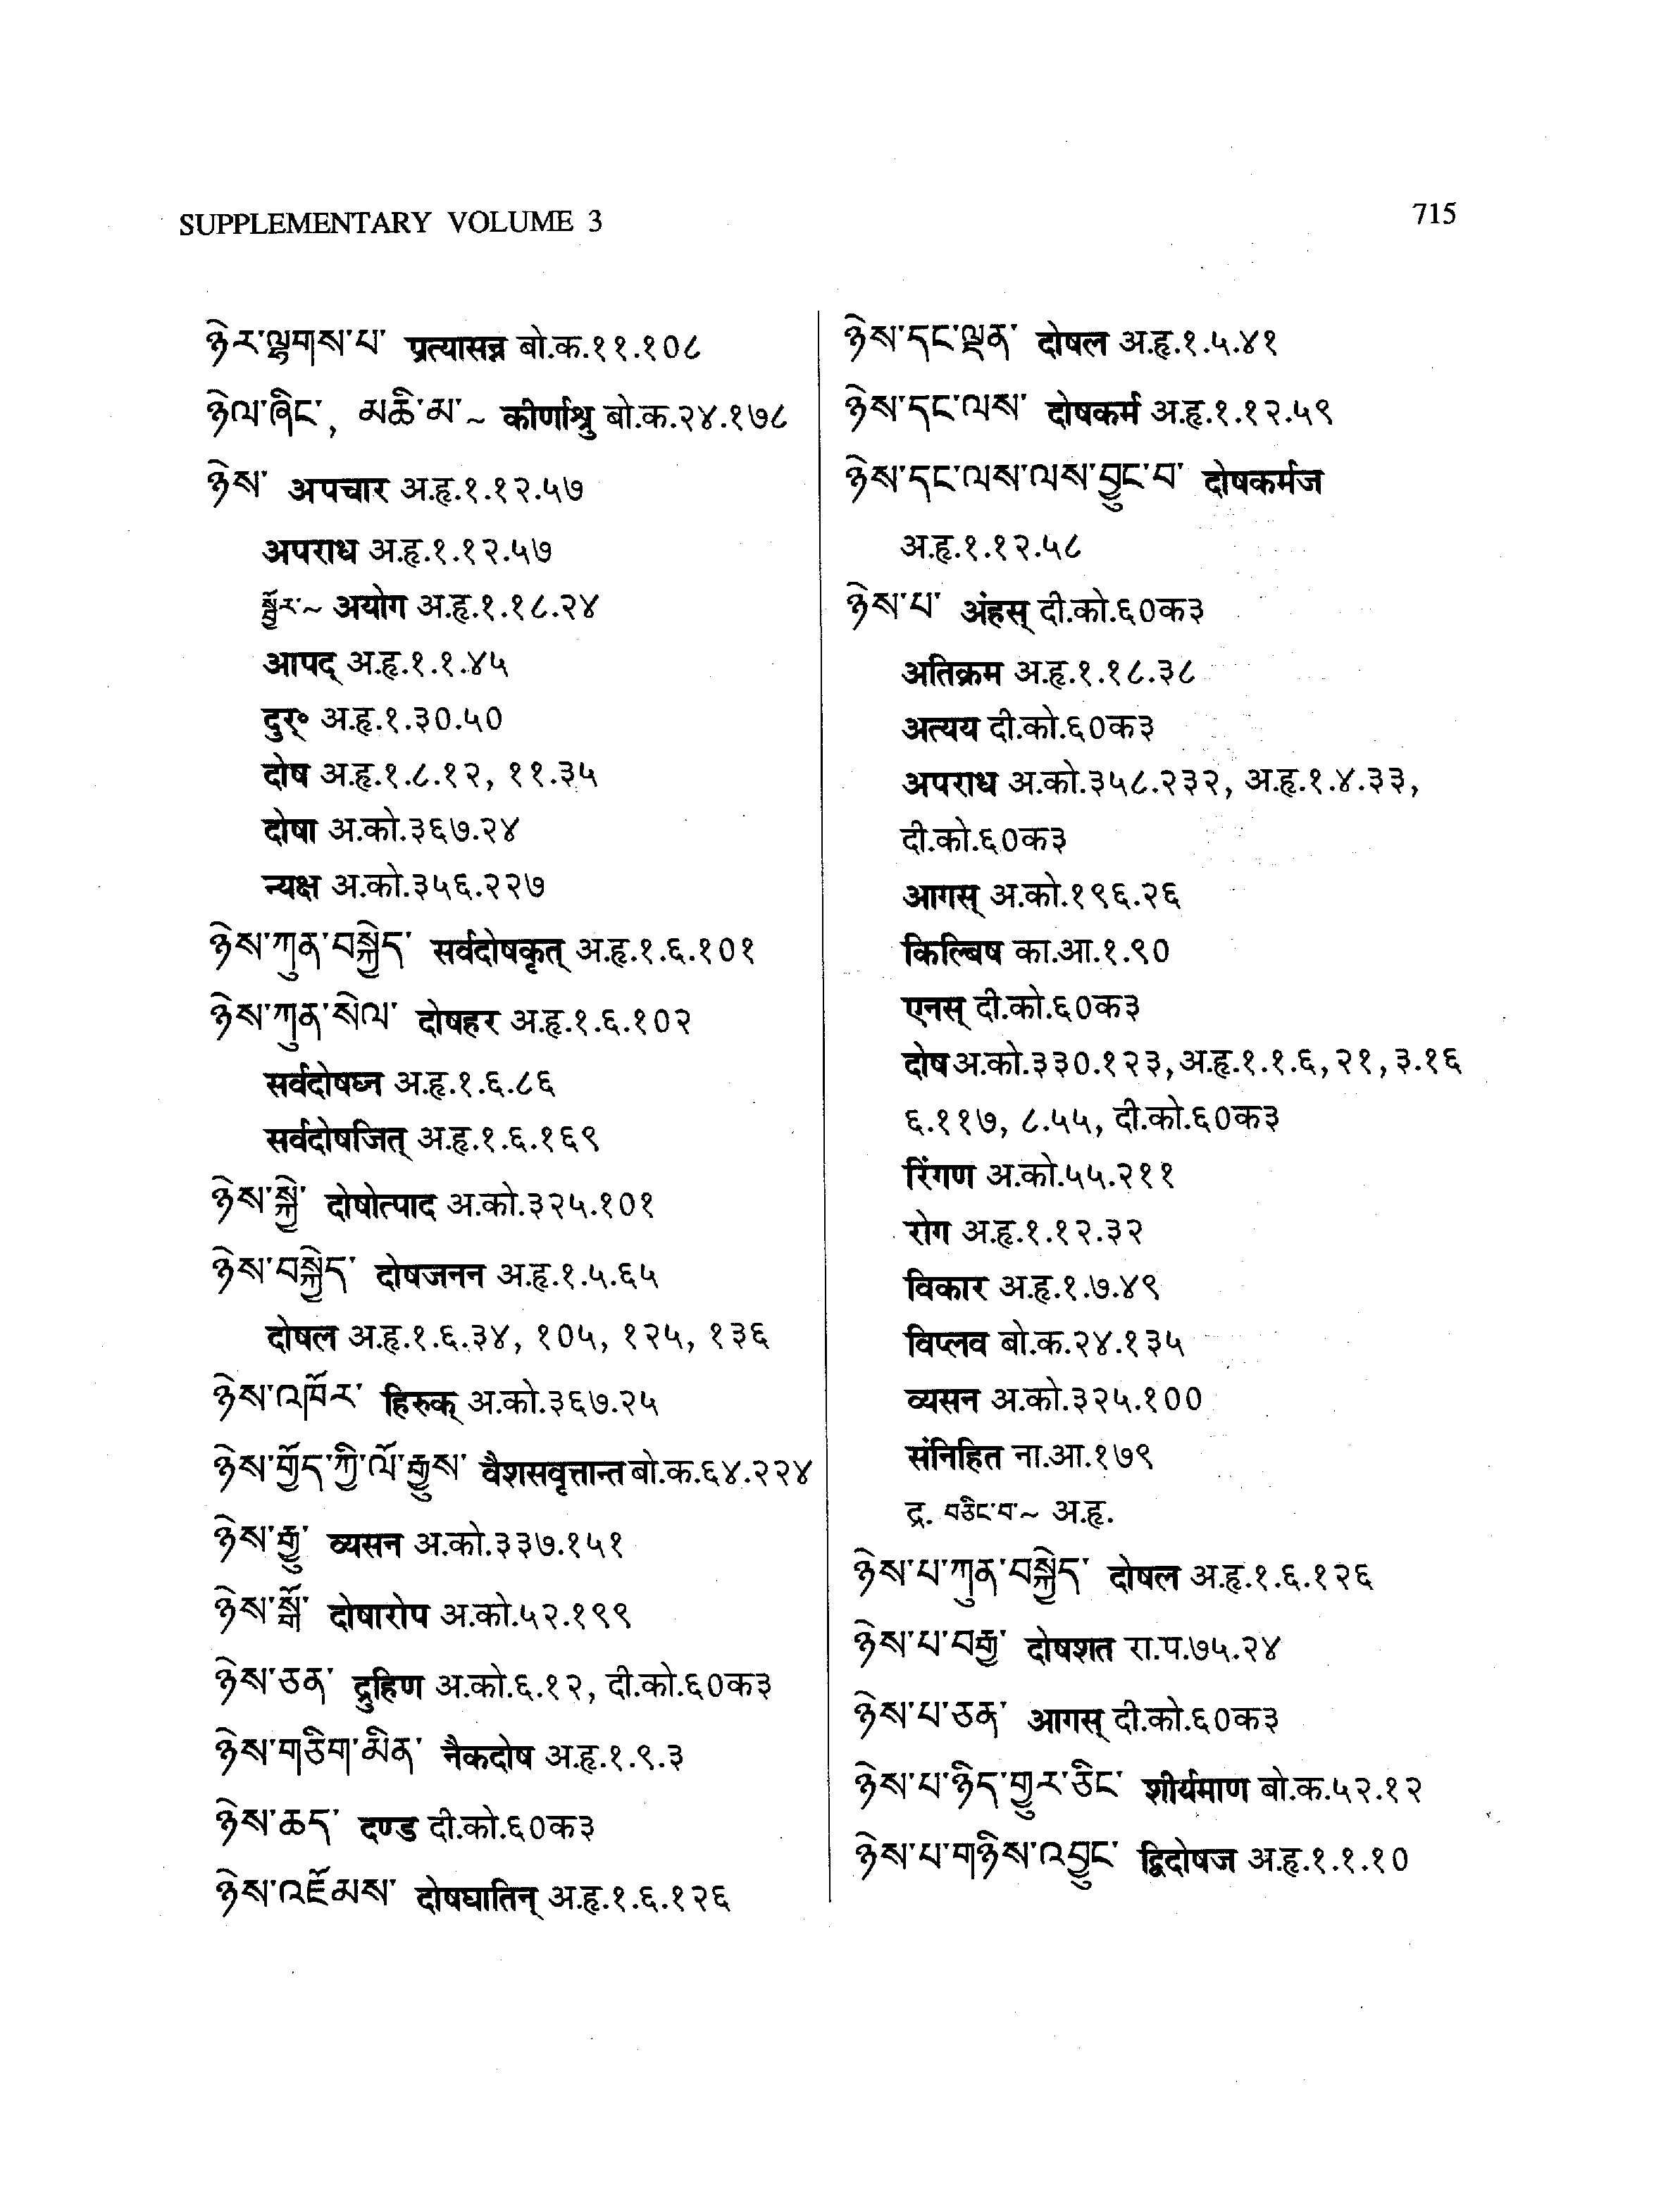 SUPPLEMENTARY VOLUME 3
715
ཉེར་ལྷགས་པ་ प्रत्यासन्न बो.क.११.१०८
ཉེལ་ཞིང་, མཆི་མ་~ कीर्णाश्रु बो.क.२४.१७८
ཉེས་ अपचार अ.हृ.१.१२.५७
अपराध अ.हृ.१.१२.५७
སྦྱོར་~ अयोग अ.हृ.१.१८.२४
आपद् अ.हृ.१.१.४५
दुर्॰ अ.हृ.१.३०.५०
दोष अ.हृ.१.८.१२, ११.३५
दोषा अ.को.३६७.२४
न्यक्ष अ.को.३५६.२२७
ཉེས་ཀུན་བསྐྱེད་ सर्वदोषकृत् अ.हृ.१.६.१०१
ཉེས་ཀུན་སེལ་ दोषहर अ.हृ.१.६.१०२
सर्वदोषघ्न अ.हृ.१.६.८६
सर्वदोषजित् अ.हृ.१.६.१६९
ཉེས་སྐྱེ་ दोषोत्पाद अ.को.३२५.१०१
ཉེས་བསྐྱེད་ दोषजनन अ.हृ.१.५.६५
दोषल अ.हृ.१.६.३४, १०५, १२५, १३६
ཉེས་འཁོར་ हिरुक् अ.को.३६७.२५
ཉེས་གྱོད་ཀྱི་ལོ་རྒྱུས་ वैशसवृत्तान्त बो.क.६४.२२४
ཉེས་རྒྱུ་ व्यसन अ.को.३३७.१५१
ཉེས་སྒྲོ་ दोषारोप अ.को.५२.१९९
ཉེས་ཅན་ द्रुहिण अ.को.६.१२, दी.को.६०क३
ཉེས་གཅིག་མིན་ नैकदोष अ.हृ.१.९.३
ཉེས་ཆད་ दण्ड दी.को.६०क३
ཉེས་འཇོམས་ दोषघातिन् अ.हृ.१.६.१२६
ཉེས་དང་ལྡན་ दोषल अ.हृ.१.५.४१
ཉེས་དང་ལས་ दोषकर्म अ.हृ.१.१२.५९
ཉེས་དང་ལས་ལས་བྱུང་བ་ दोषकर्मज
अ.हृ.१.१२.५८
ཉེས་པ་ अंहस् दी.को.६०क३
अतिक्रम अ.हृ.१.१८.३८
अत्यय दी.को.६०क३
अपराध अ.को.३५८.२३२, अ.हृ.१.४.३३,
दी.को.६०क३
आगस् अ.को.१९६.२६
किल्बिष का.आ.१.९०
एनस् दी.को.६०क३
दोष अ.को.३३०.१२३, अ.हृ.१.१.६, २१, ३.१६
६.११७, ८.५५, दी.को.६०क३
रिंगण अ.को.५५.२११
रोग अ.हृ.१.१२.३२
विकार अ.हृ.१.७.४९
विप्लव बो.क.२४.१३५
व्यसन अ.को.३२५.१००
संनिहित ना.आ.१७९
द्र. བཅིང་བ་~ अ.हृ.
ཉེས་པ་ཀུན་བསྐྱེད་ दोषल अ.हृ.१.६.१२६
ཉེས་པ་བརྒྱ་ दोषशत रा.प.७५.२४
ཉེས་པ་ཅན་ आगस् दी.को.६०क३
ཉེས་པ་ཉིད་གྱུར་ཅིང་ शीर्यमाण बो.क.५२.१२
ཉེས་པ་གཉིས་འབྱུང་ द्विदोषज अ.हृ.१.१.१०